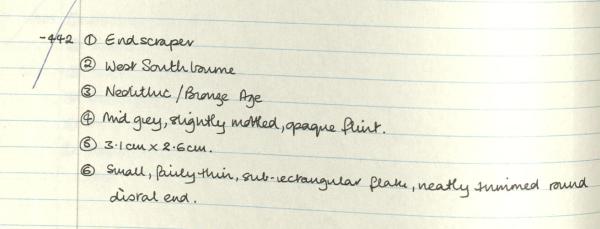 -442 ① Endscraper
② West Southbourne
③ Neolithic / Bronze Age
④ Mid grey, slightly mottled, opaque flint.
⑤ 3.1cm x 2.6cm.
⑥ Small, fairly thin, sub-rectangular flake, neatly trimmed round
distal end.